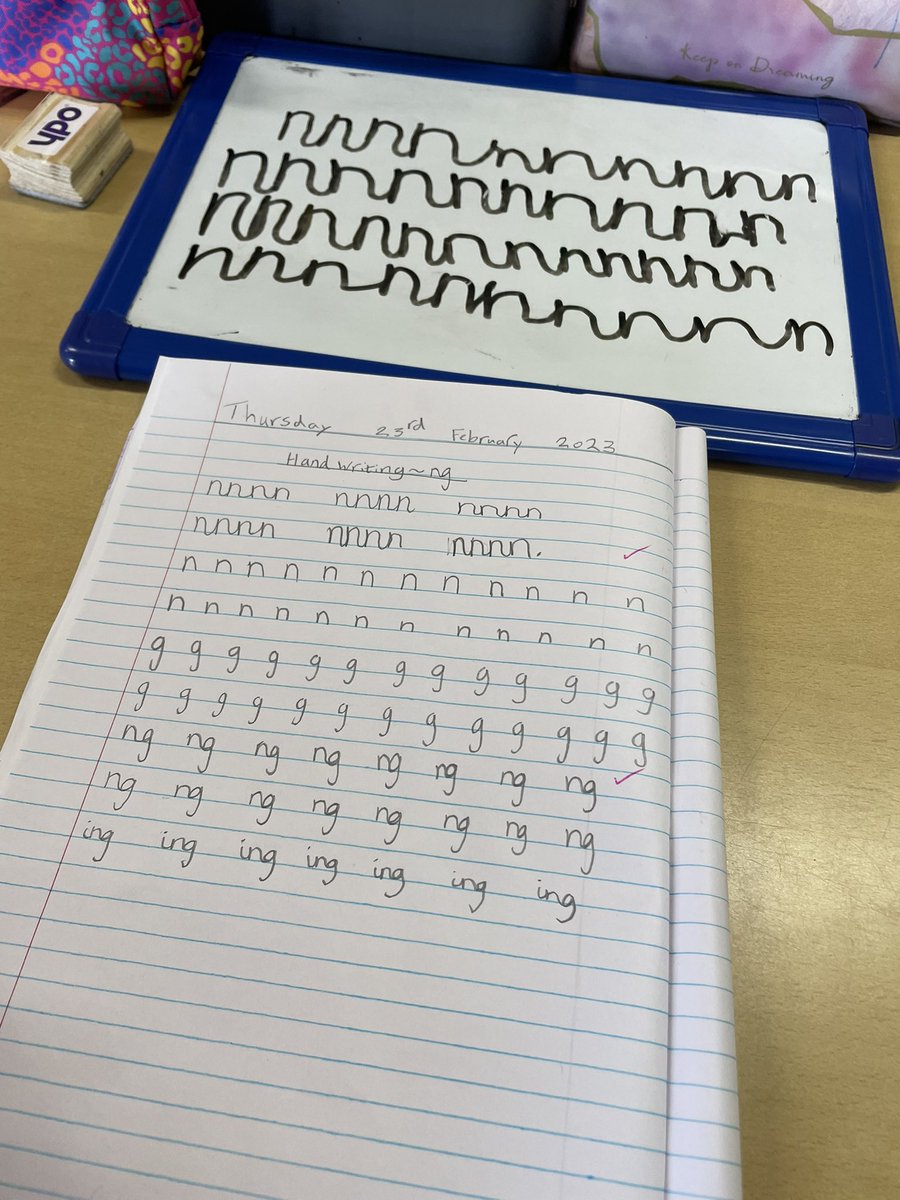 Keep on Dreaming
YPO
nnnnnnnnnn
nnnnnnnnnn
nnnnnnnnnnnn
nnnnnnnnnn
Thursday 23rd February 2023
Handwriting~ng
nnnn nnnn nnnn
nnnn nnnn nnnn.
n n n n n n n n n n n n
n n n n n n n n n n n n
g g g g g g g g g g g g g
g g g g g g g g g g g g g
ng ng ng ng ng ng ng ng
ng ng ng ng ng ng ng ng
ing ing ing ing ing ing ing